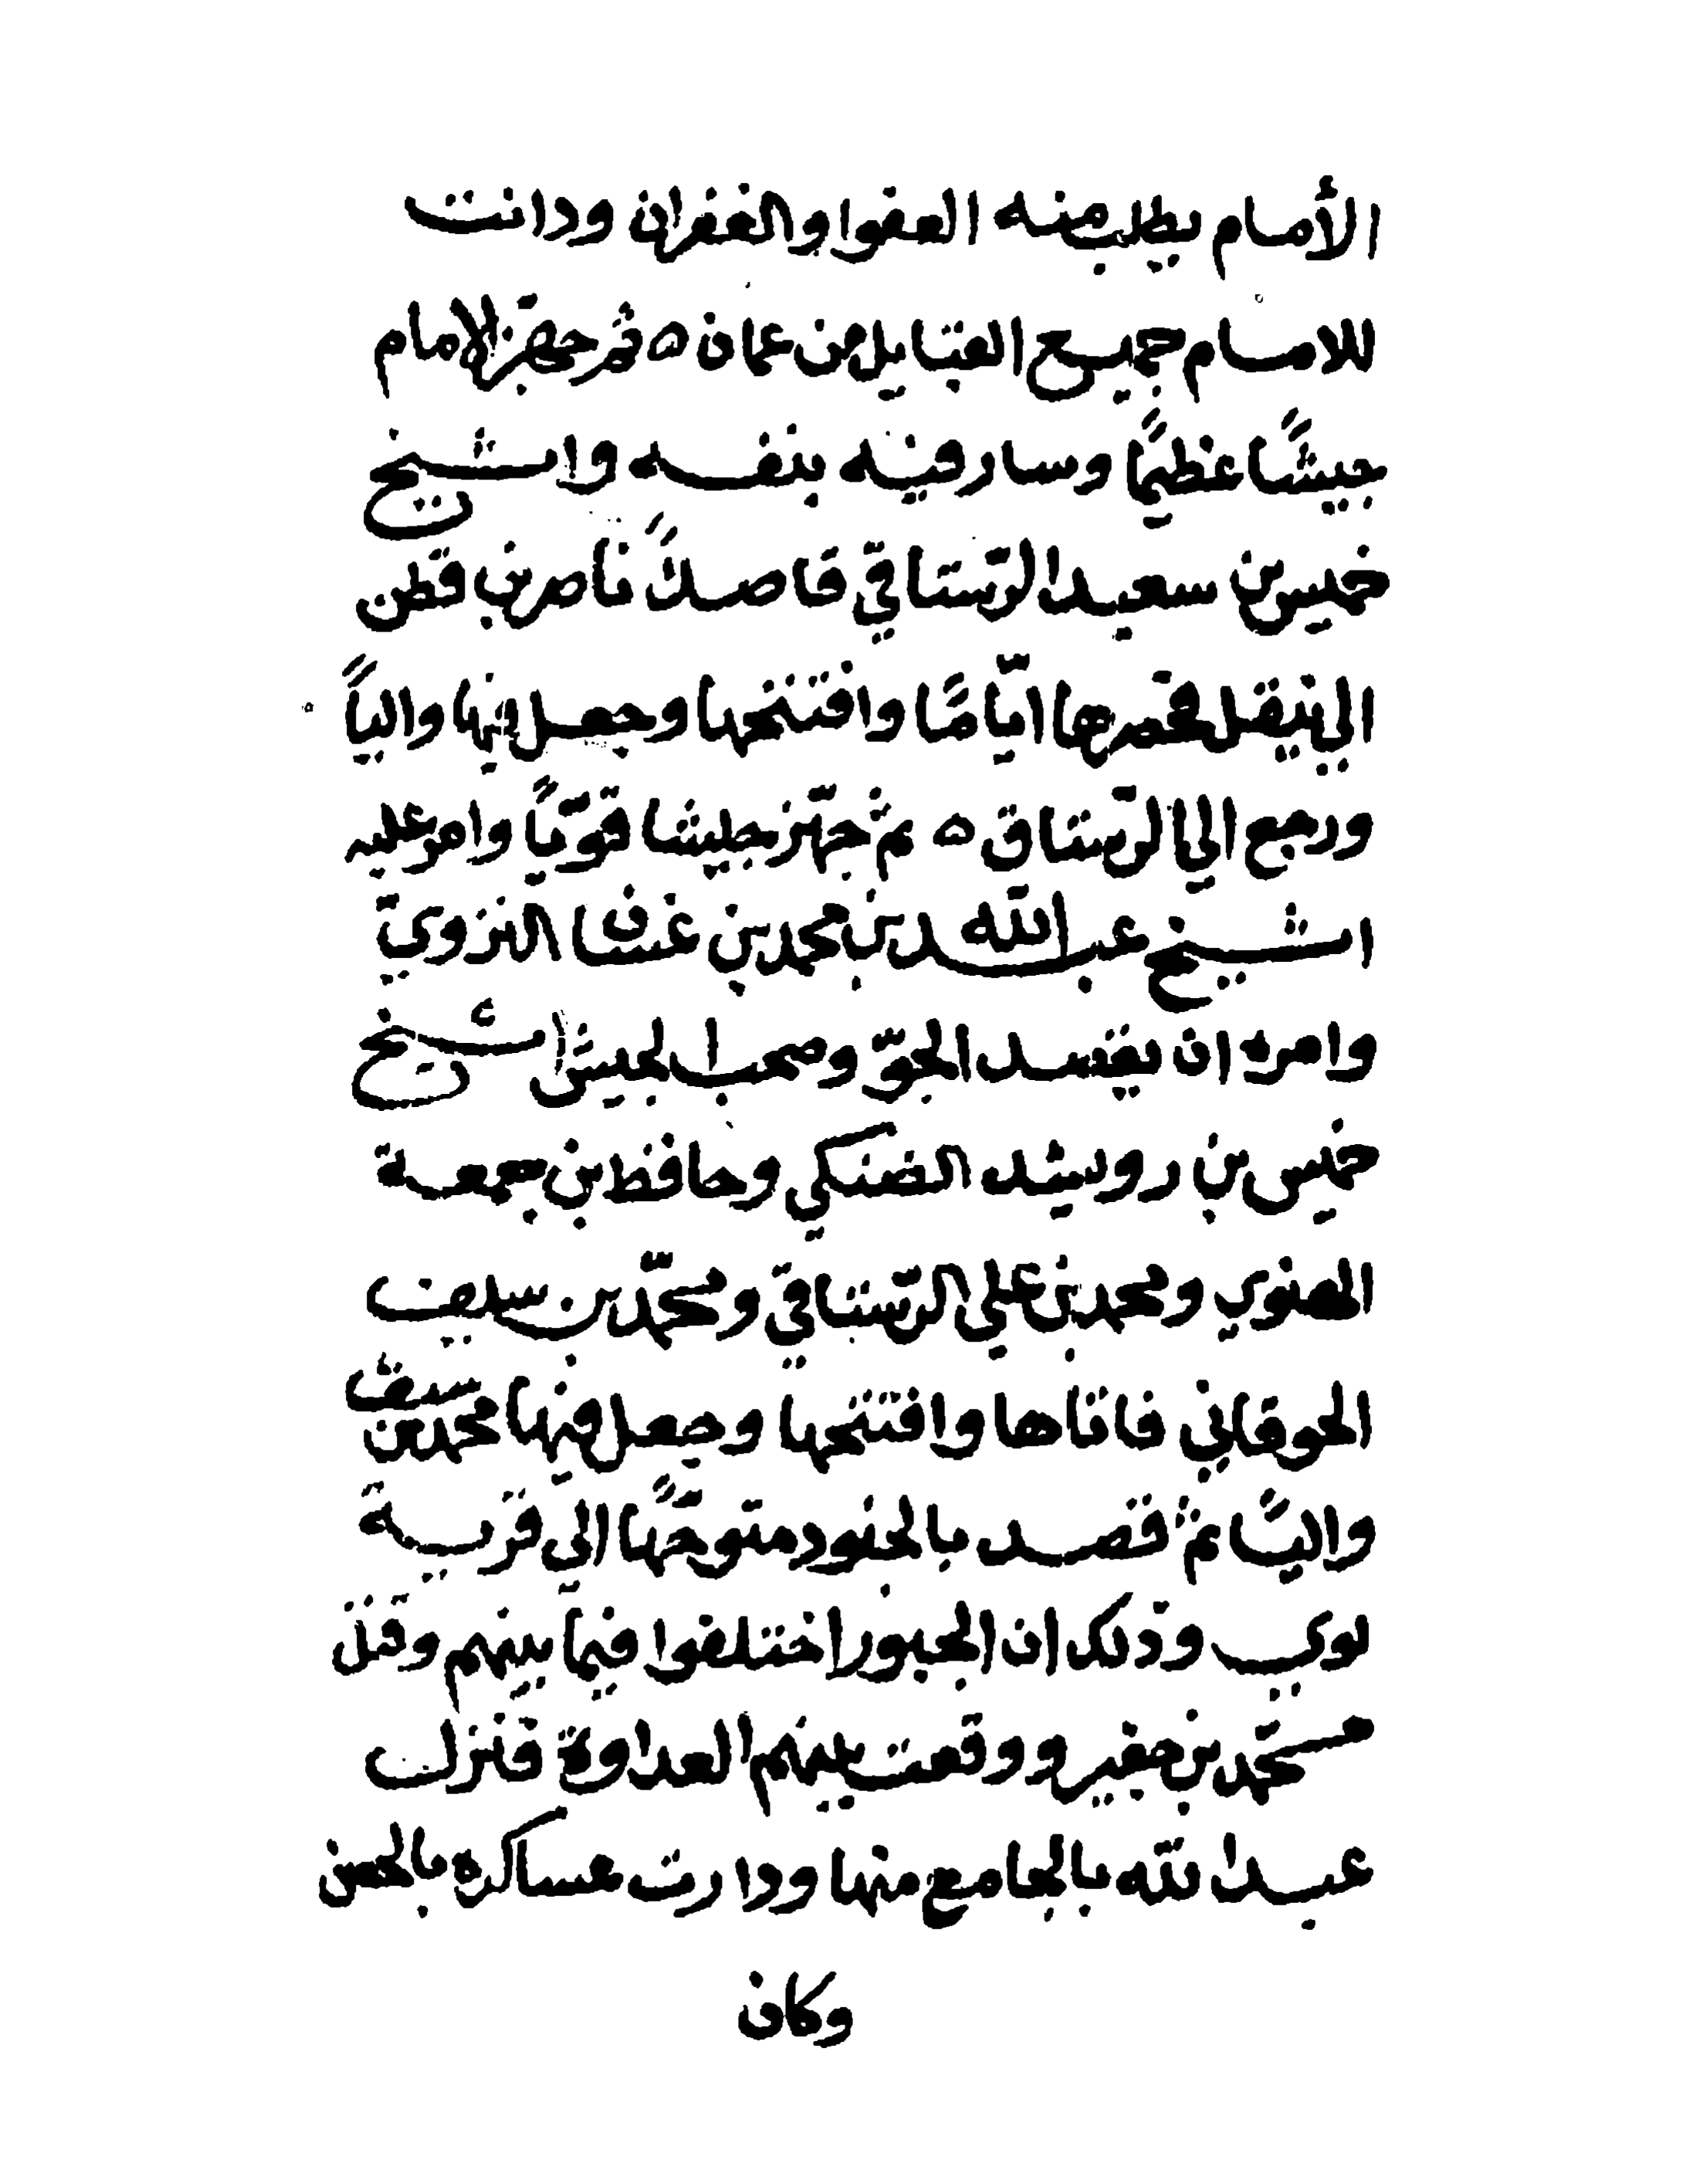 الأمام يطلب منه العفوا والغفران ودانت
للامام جميع القبايل من عمان ه ثم جهّز الامام
جيشًا عظيمًا وسار فيه بنفسه والشيخ
خميس بن سعيد الرّستاقي قاصدًا ناصر بن قطن
الي ينقل فحصرها ايّامًا وافتتحها وجعل فيها واليًا
ورجع الي الرّستاق ه ثم جهّز جيشا قويًّا وامر عليه
الشيخ عبد الله بن محمد بن غسان النزوي
وامره ان يقصد الجوّ وصحب الجيش الشيخ
خميس بن رويشد الضنكي وحافظ بن جمعة
الهنوي ومحمد بن علي الرّستاقي ومحمّد بن سيف
الحوقاني فاتاها وافتتحها وجعل فيها محمد بن سيف
واليًا ثم قصد بالجنود متوجّهًا الي قرية
لوي وذلك ان الجبور اختلفوا فيما بينهم وقتل
محمّد بن جفير ووقعت بينهم العداوة فنزل
عبد الله بالجامع منها ودارت عساكره بالحصن
وكان